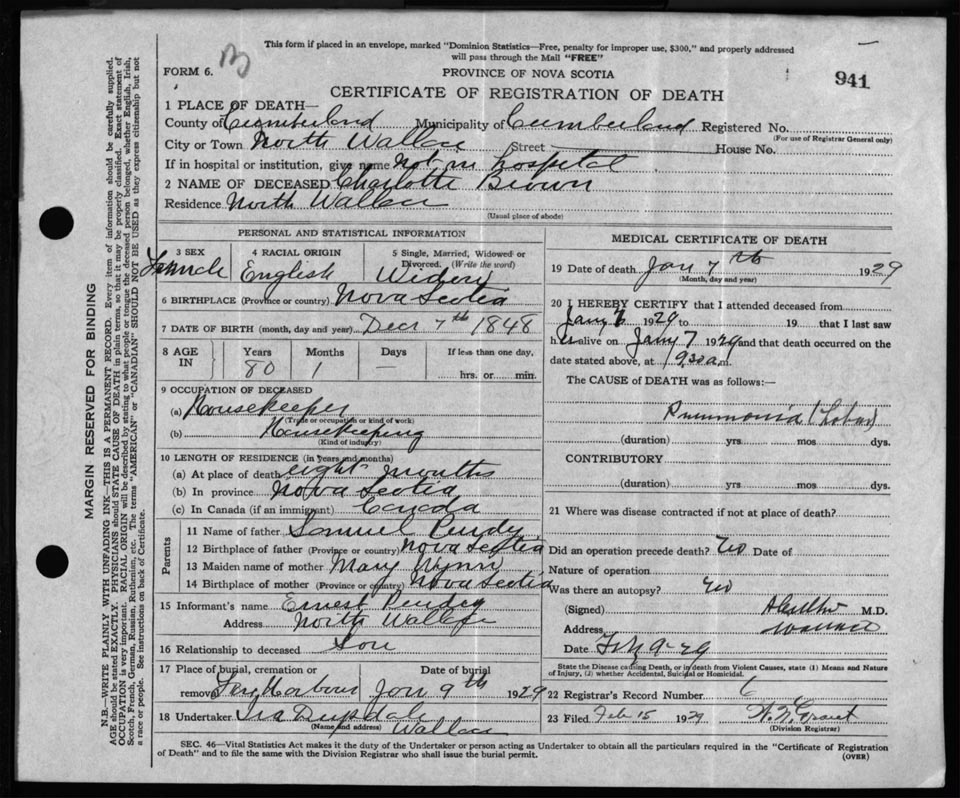 This form if placed in an envelope, marked "Dominion Statistics—Free, penalty for improper use, $300," and properly addressed
will pass through the Mail "FREE"
FORM 6.
PROVINCE OF NOVA SCOTIA
941
CERTIFICATE OF REGISTRATION OF DEATH
1 PLACE OF DEATH—
County of Cumberland Municipality of Cumberland Registered No.
(For use of Registrar General only)
City or Town North Wallace Street House No.
If in hospital or institution, give name not in hospital
2 NAME OF DECEASED Charlotte Brown
Residence North Wallace
(Usual place of abode)
PERSONAL AND STATISTICAL INFORMATION
3 SEX 4 RACIAL ORIGIN 5 Single, Married, Widowed or
Divorced. (Write the word)
Female English Widow
6 BIRTHPLACE (Province or country) Nova Scotia
7 DATE OF BIRTH (month, day and year) Decr 7th 1848
8 AGE IN Years Months Days If less than one day,
80 1 — hrs. or min.
9 OCCUPATION OF DECEASED
(a) Housekeeper
(Trade or occupation or kind of work)
(b) Housekeeping
(Kind of industry)
10 LENGTH OF RESIDENCE (in years and months)
(a) At place of death eight months
(b) In province Nova Scotia
(c) In Canada (if an immigrant) Canada
Parents
11 Name of father Samuel Purdy
12 Birthplace of father (Province or country) Nova Scotia
13 Maiden name of mother Mary Wynn
14 Birthplace of mother (Province or country) Nova Scotia
15 Informant's name Ernest Purdy
Address North Wallace
16 Relationship to deceased Son
17 Place of burial, cremation or Date of burial
removal Harbour Jan 9th 1929
18 Undertaker Ira
(Name and address) Wallace
MEDICAL CERTIFICATE OF DEATH
19 Date of death Jan 7th 1929
(Month, day and year)
20 I HEREBY CERTIFY that I attended deceased from
Jany 1929 to 19 that I last saw
her alive on Jany 7 1929 and that death occurred on the
date stated above, at 9.30 a.m.
The CAUSE of DEATH was as follows:—
Pneumonia (Lobar)
(duration) yrs. mos. dys.
CONTRIBUTORY
(duration) yrs. mos. dys.
21 Where was disease contracted if not at place of death?
Did an operation precede death? no Date of
Nature of operation
Was there an autopsy? no
(Signed) M.D.
Address Wallace
Date Feb 9-29
State the Disease causing Death, or in death from Violent Causes, state (1) Means and Nature
of Injury, (2) whether Accidental, Suicidal or Homicidal.
22 Registrar's Record Number 6
23 Filed Feb 15 1929 Grant
(Division Registrar)
SEC. 46—Vital Statistics Act makes it the duty of the Undertaker or person acting as Undertaker to obtain all the particulars required in the "Certificate of Registration
of Death" and to file the same with the Division Registrar who shall issue the burial permit.
(OVER)
MARGIN RESERVED FOR BINDING
N.B.—WRITE PLAINLY WITH UNFADING INK—THIS IS A PERMANENT RECORD. Every item of information should be carefully supplied.
AGE should be stated EXACTLY. PHYSICIANS should STATE CAUSE OF DEATH in plain terms, so that it may be properly classified. Exact statement of
OCCUPATION is very important. RACIAL ORIGIN will be described by stating to what people or tongue the deceased person belonged, whether English, Irish,
Scotch, French, German, Russian, Ruthenian, etc. The terms "AMERICAN" or "CANADIAN" SHOULD NOT BE USED as they express citizenship but not
a race or people. See instructions on back of Certificate.